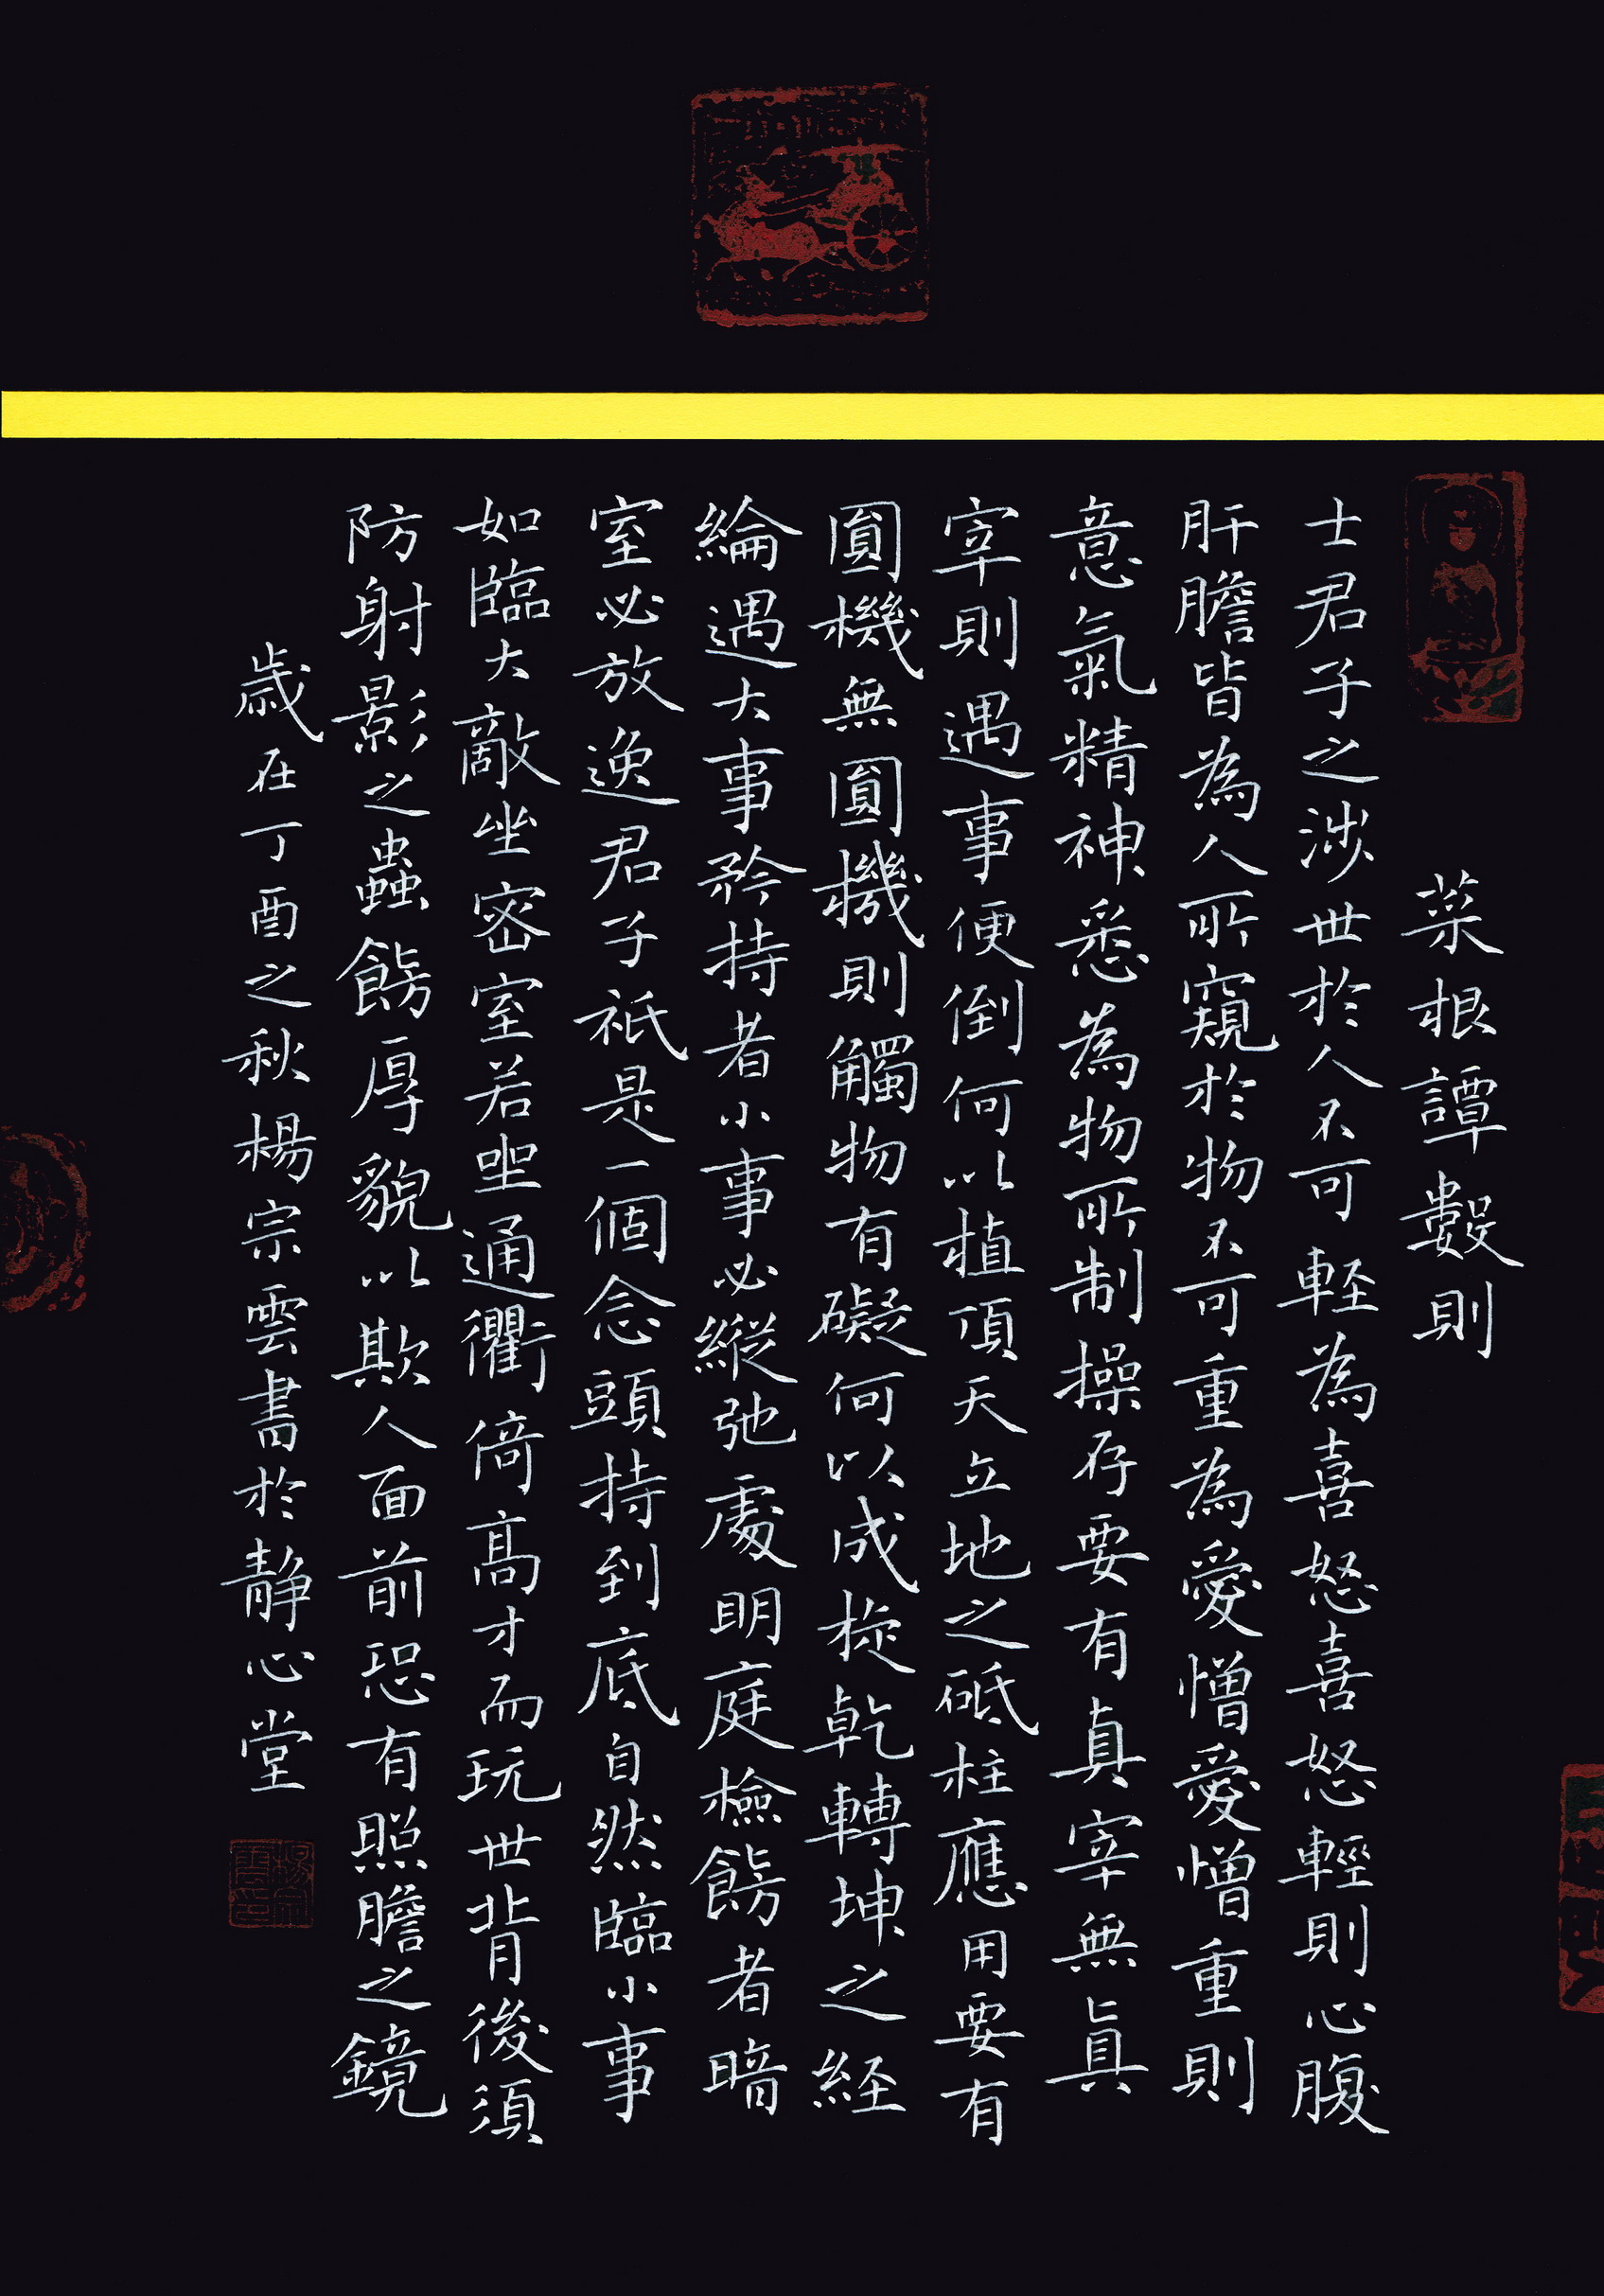 菜根譚數則
士君子之涉世於人不可輕為喜怒喜怒輕則心腹
肝膽皆為人所窺於物不可重為愛憎愛憎重則
意氣精神悉為物所制操存要有真宰無真
宰則遇事便倒何以植頂天立地之砥柱應用要有
圓機無圓機則觸物有礙何以成旋乾轉坤之経
綸遇大事矜持者小事必縱弛處明庭檢飭者暗
室必放逸君子祇是一個念頭持到底自然臨小事
如臨大敵坐密室若坐通衢倚高才而玩世背後須
防射影之蟲飭厚貌以欺人面前恐有照膽之鏡
歳在丁酉之秋楊宗雲書於静心堂